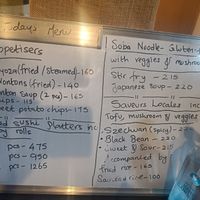 Todays Menu
ppetisers
yoza (fried / steamed) - 160
Wontons (fried) - 140
onton Soup (2 pc) - 165
ips - 115
eet potato chips - 175
ed sushi Platters inc
ry rolls
pcs - 475
pcs - 950
pcs - 1265
Soba Noodle - Gluten-f
with veggies & mushroom
Stir fry - 215
Japanese Soup - 220
Saveurs Locales inc
Tofu, mushroom & veggies
• Szechwan (spicy) - 22
• Black Bean - 220
• Sweet & Sour - 215
Accompanied by
fried rice - 165
rice - 100